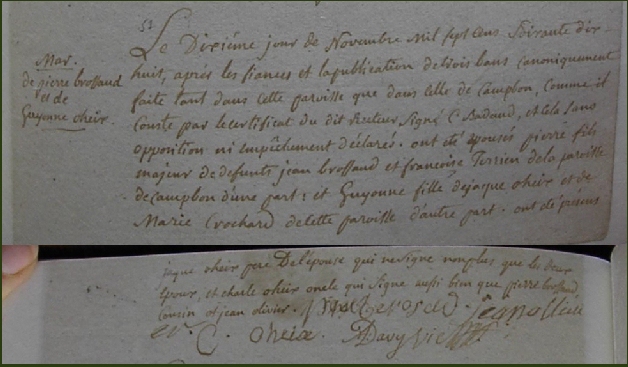 52
Mar.
de pierre brossaud
et de
Guyonne oheix.
Le Dixiéme jour de Novembre Mil sept Cens Soixante dix
huit, après les fiances et la publication de trois bans canoniquement
faite tant dans Cette paroisse que dans Celle de Campbon, Comme il
Conste par le certificat du dit Recteur Signé C. Badaud, et Cela Sans
opposition ni empêchement déclarés. ont été épousés pierre fils
majeur de defunts jean brossaud et françoise Terrien de la paroisse
de Campbon d'une part : et Guyonne fille de jaque oheix et de
Marie Crochard de Cette paroisse d'autre part. ont été présens
jaque oheix pere De l'épouse qui ne Signe non plus que les deux
Epoux, et charle oheix oncle qui Signe aussi bien que pierre brossaud
Cousin et jean olivier.
C. oheix Davy Vic